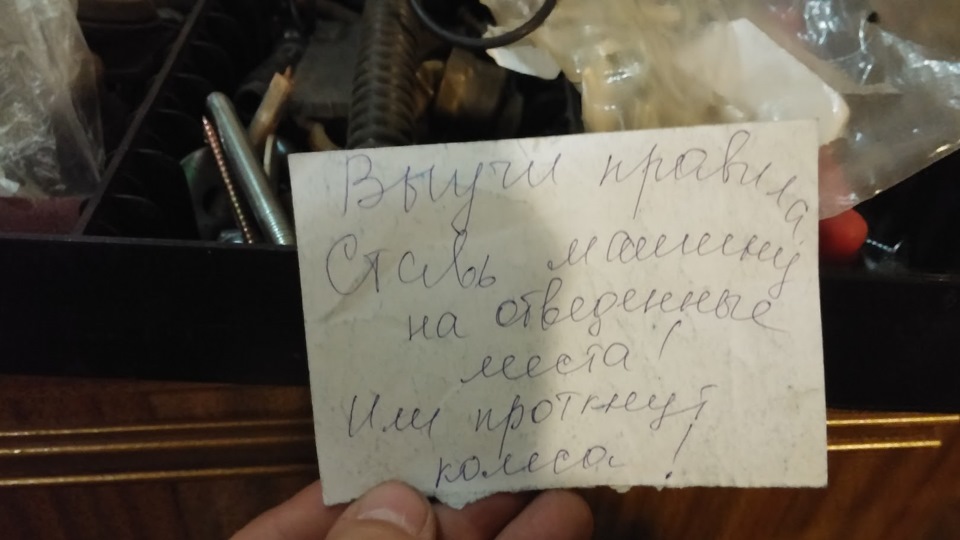 Выучи правила
Ставь машину
на отведенные
места!
Или проткнут
колеса!